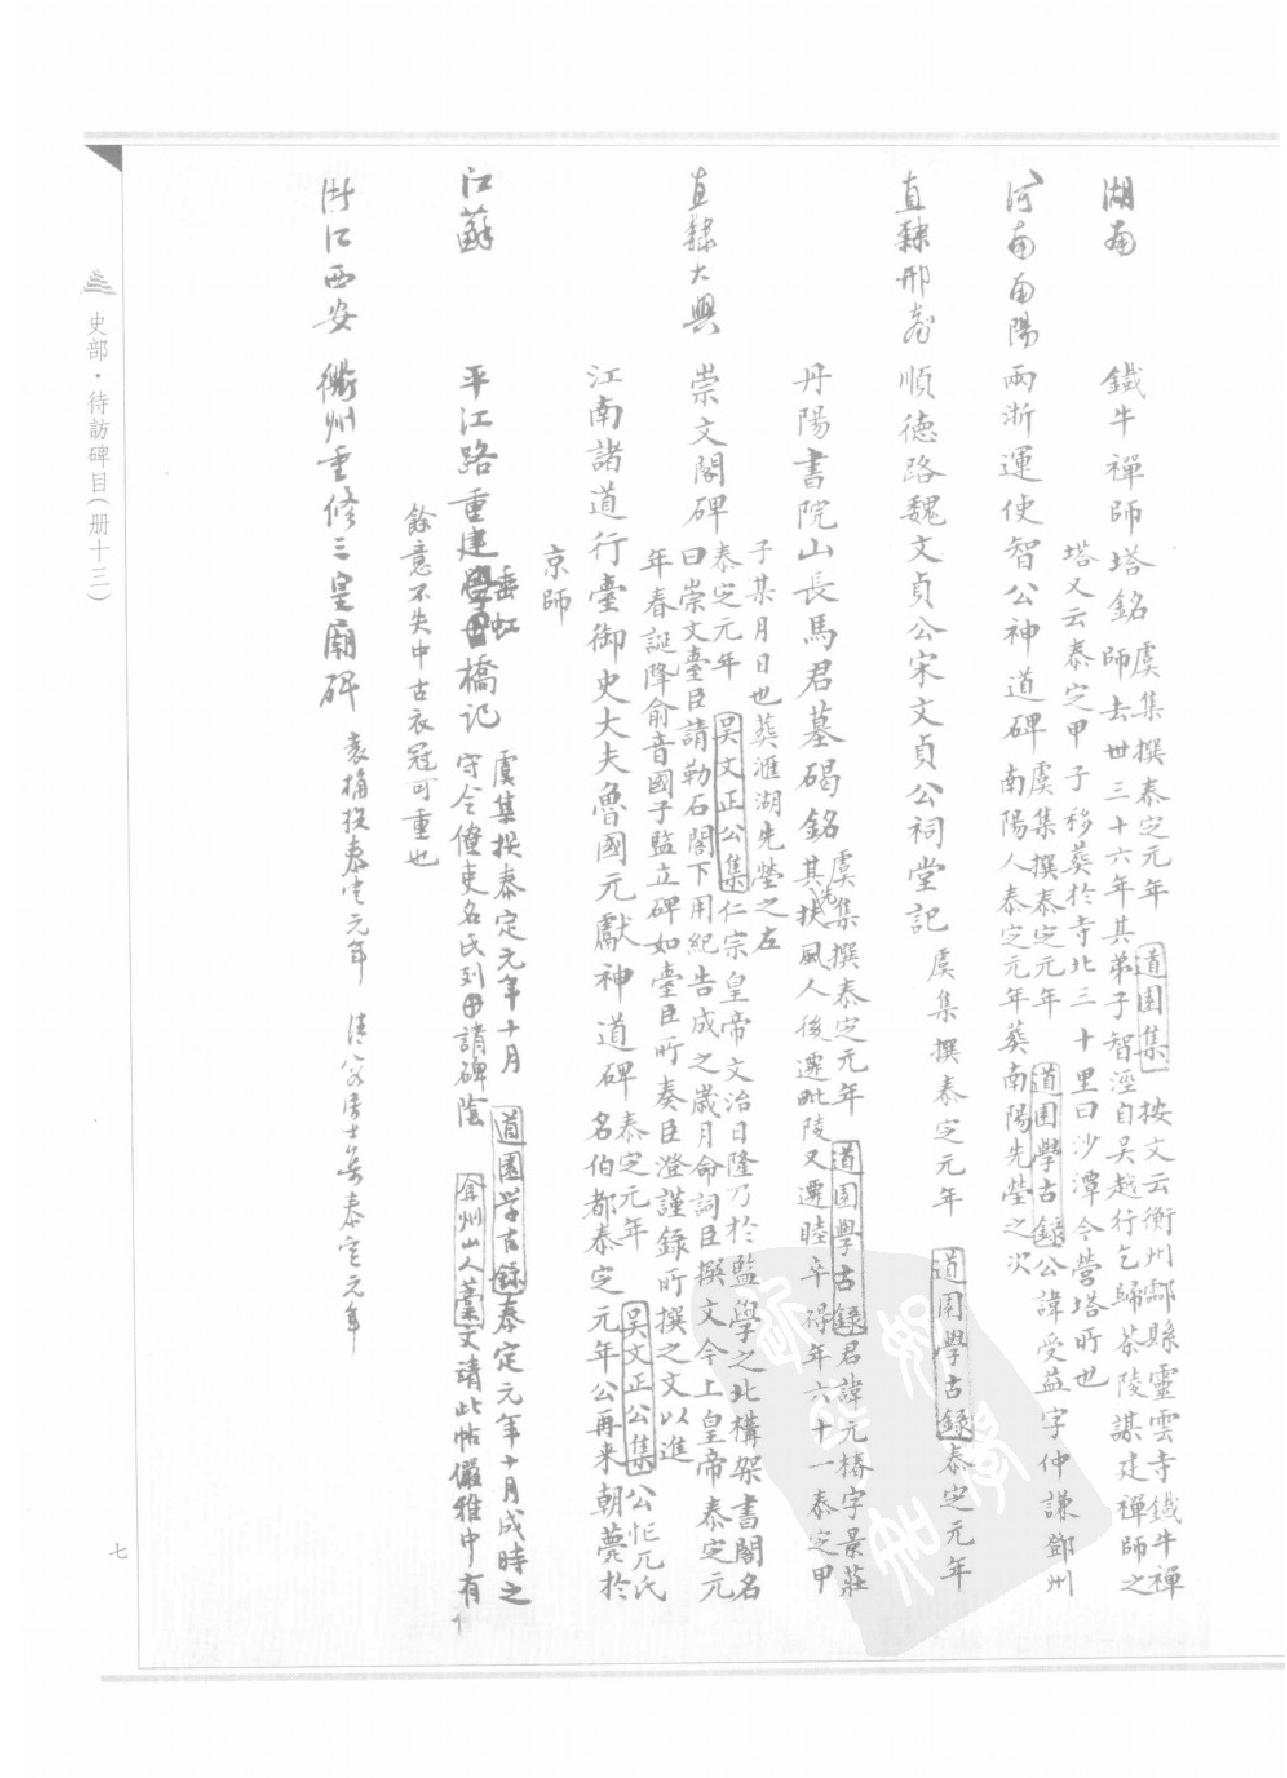 湖南
鐵牛禪師塔銘
虞集撰泰定元年 道園集 按文云衡州酃縣靈雲寺鐵牛禪
師去世三十六年其弟子智涇自吳越行乞歸茶陵謀建禪師之
塔又云泰定甲子移葬於寺北三十里曰沙潭今營塔所也
河南南陽
兩浙運使智公神道碑
虞集撰泰定元年 道園學古錄 公諱受益字仲謙鄧州
南陽人泰定元年葬南陽先塋之次
直隸邢臺
順德路魏文貞公宋文貞公祠堂記
虞集撰泰定元年 道園學古錄 泰定元年
丹陽書院山長馬君墓碣銘
虞集撰泰定元年 道園學古錄 君諱元椿字景莊
其先扶風人後遷毗陵又遷睦卒得年六十一泰定甲
子某月日也葬滙湖先塋之左
直隸大興
崇文閣碑
泰定元年 吳文正公集 仁宗皇帝文治日隆乃於監學之北構架書閣名
曰崇文臺臣請勒石閣下用紀告成之歲月命詞臣撰文今上皇帝泰定元
年春誕降俞音國子監立碑如臺臣所奏臣澄謹錄所撰之文以進
江南諸道行臺御史大夫魯國元獻神道碑
泰定元年 吳文正公集 公忙兀氏
名伯都泰定元年公再来朝薨於
京師
江蘇
平江路重建垂虹橋記
虞集撰泰定元年十月 道園学古錄 泰定元年十月成時之
守令僚吏名氏列田請碑陰 弇州山人藁 文請此帖儼雅中有
餘意不失中古衣冠可重也
浙江西安
衢州重修三皇廟碑
袁桷撰泰定元年 清容居士集泰定元年
史部·待訪碑目(册十三)
七